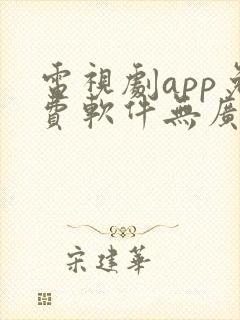 電視劇app免
費軟件無廣
宋建華